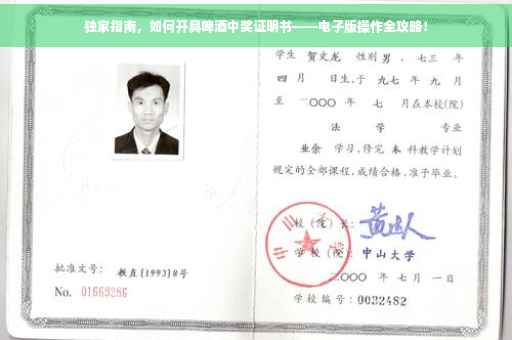 独家指南，如何开具啤酒中奖证明书——电子版操作全攻略！
学生 贺文龙 性别 男 、七三 年
四 月 日生,于 九七 年 九 月
至 二〇〇〇 年 七 月在本校(院)
法 学 专业
业余 学习,修完 本 科教学计划
规定的全部课程,成绩合格,准予毕业。
校(院)长:
学校(院): 中山大学
二〇〇〇 年 七 月 一 日
学校编号: 0032482
批准文号: 教直[1993]8号
No. 01669286